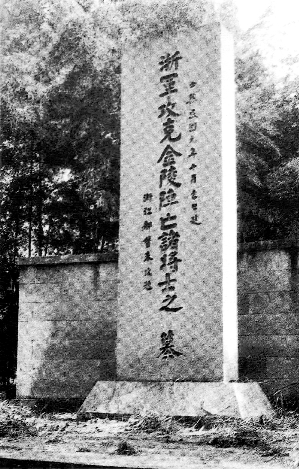 中華民國元年十月吉日建
浙軍攻克金陵陣亡諸將士之墓
浙江都督朱瑞